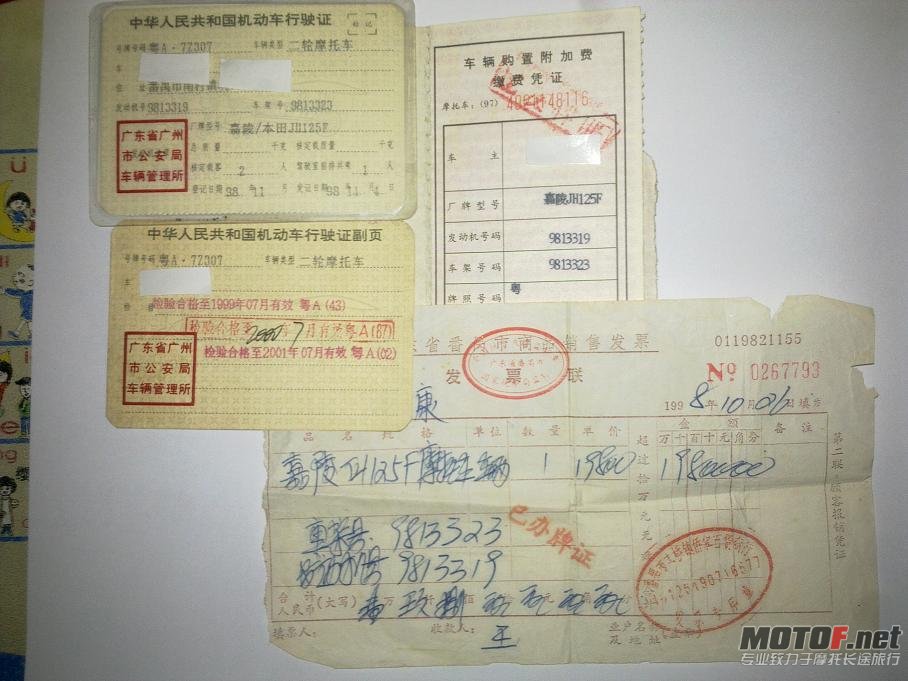 中华人民共和国机动车行驶证
号牌号码 粤A·7Z307 车辆类型 二轮摩托车
车
住 址 番禺市南村镇
发动机号 9813319 车架号 9813323
厂牌型号 嘉陵/本田JH125F
总质量 千克 核定载质量 千克
核定载客 2 人 驾驶室前排共乘 1 人
登记日期 98年11月 日 发证日期 98年11月4日
广东省广州
市公安局
车辆管理所
中华人民共和国机动车行驶证副页
号牌号码 粤A·7Z307 车辆类型 二轮摩托车
车
检验合格至1999年07月有效 粤A(43)
检验合格至2000年7月有效粤A(87)
检验合格至2001年07月有效 粤A(02)
广东省广州
市公安局
车辆管理所
车辆购置附加费
缴费凭证
摩托车:(97) 4091148116
车 主
厂牌型号 嘉陵JH125F
发动机号码 9813319
车架号码 9813323
牌照号码 粤
东省番禺市商品销售发票 0119821155
发票联 № 0267793
康 1998年10月26日填发
品名 规格 单位 数量 单价 超过拾万元无效 金额 备注
万千百十元角分
嘉陵JH125F摩托车 辆 1 19800 1980000
车架号 9813323
发动机号 9813319
已办牌证
合计人民币(大写) 壹万玖仟捌佰
填票人: 收款人: 王 业户名称及地址:(盖章)
第二联:顾客报销凭证
MOTOF.net
专业致力于摩托长途旅行